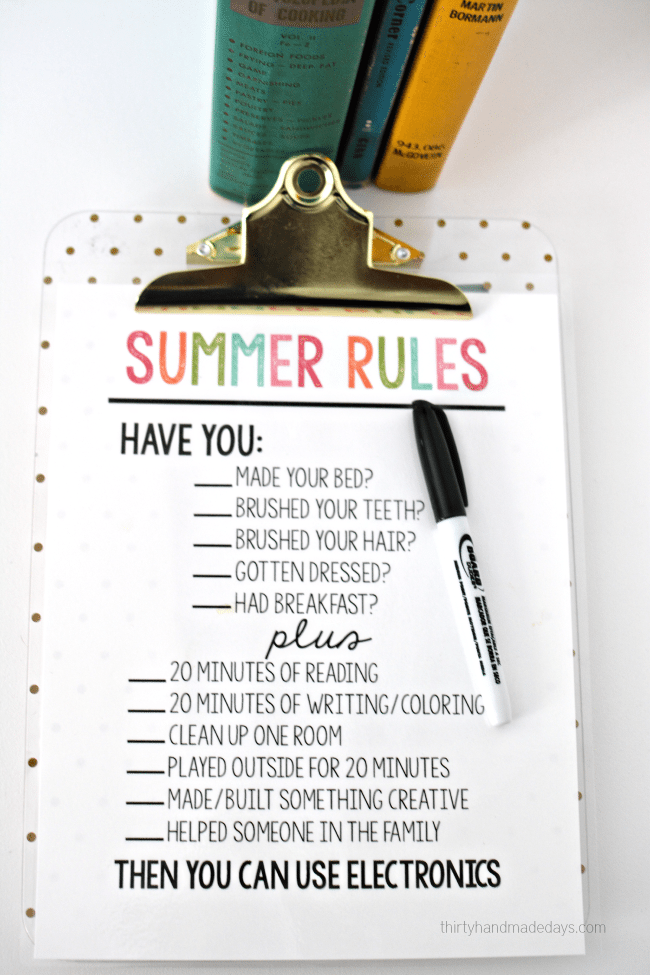 OF COOKING
VOL II
FOREIGN FOODS
FRYING — DEEP-FAT
GAME
MEATS
Corner
MARTIN
BORMANN
McGOVERN
SUMMER RULES
HAVE YOU:
MADE YOUR BED?
BRUSHED YOUR TEETH?
BRUSHED YOUR HAIR?
GOTTEN DRESSED?
HAD BREAKFAST?
plus
20 MINUTES OF READING
20 MINUTES OF WRITING/COLORING
CLEAN UP ONE ROOM
PLAYED OUTSIDE FOR 20 MINUTES
MADE/BUILT SOMETHING CREATIVE
HELPED SOMEONE IN THE FAMILY
THEN YOU CAN USE ELECTRONICS
BOARD
thirtyhandmadedays.com